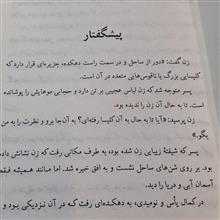 پیشگفتار
زن گفت: «دور از ساحل و در سمت راست دهکده، جزیره‌ای قرار دارد که
کلیسایی بزرگ با ناقوس‌هایی متعدد در آن است.
پسر متوجه شد که زن لباس عجیبی بر تن دارد و حجابی موهایش را پوشانده
است. تا به حال آن زن را ندیده بود.
زن پرسید: «آیا تا به حال به آن کلیسا رفته‌ای؟ به آن‌جا برو و نظرت را به من
بگو.»
پسر که شیفتهٔ زیبایی زن شده بود، به طرف مکانی رفت که زن نشانش داده
بود. بر روی شن‌های ساحل نشست و به افق خیره شد. اما مانند همیشه فقط
آسمان آبی و دریا را دید.
در کمال یأس و نومیدی، به دهکده‌ای رفت که در آن نزدیکی بود و